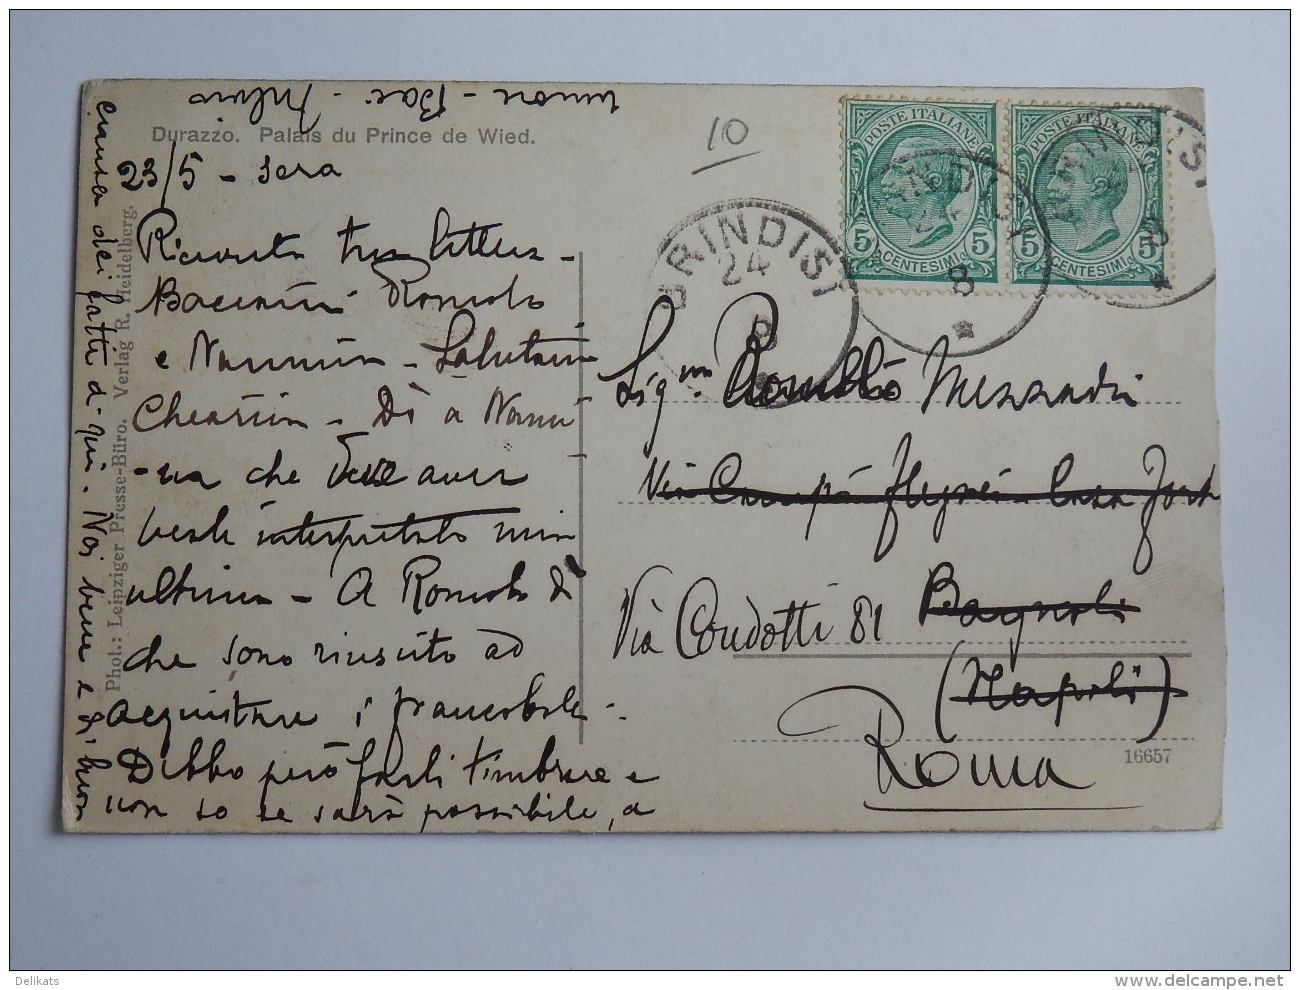 Durazzo. Palais du Prince de Wied.
23/5 - sera
Ricevuta tua lettera -
Bacioni Romolo
e Nannina - Salutami
- Dì a Nanni
-na che deve aver
interpretato mia
ultima - A Romolo dì
che sono riuscito ad
acquistare i francobolli -
Debbo però farli timbrare e
non so se sarà possibile, a
causa dei fatti di qui. Noi bene e di buon
umore - Baci - Silvio
Phot.: Leipziger Presse-Büro. Verlag R. Heidelberg.
10
POSTE ITALIANE
5 5
CENTESIMI
POSTE ITALIANE
5 5
CENTESIMI
BRINDISI
24
8
BRINDISI
8
BRINDISI
8
Sig.na
Via Campi Flegrei Casa
Via Condotti 81 Bagnoli
(Napoli)
Roma
16657
Delikats
delcampe.net